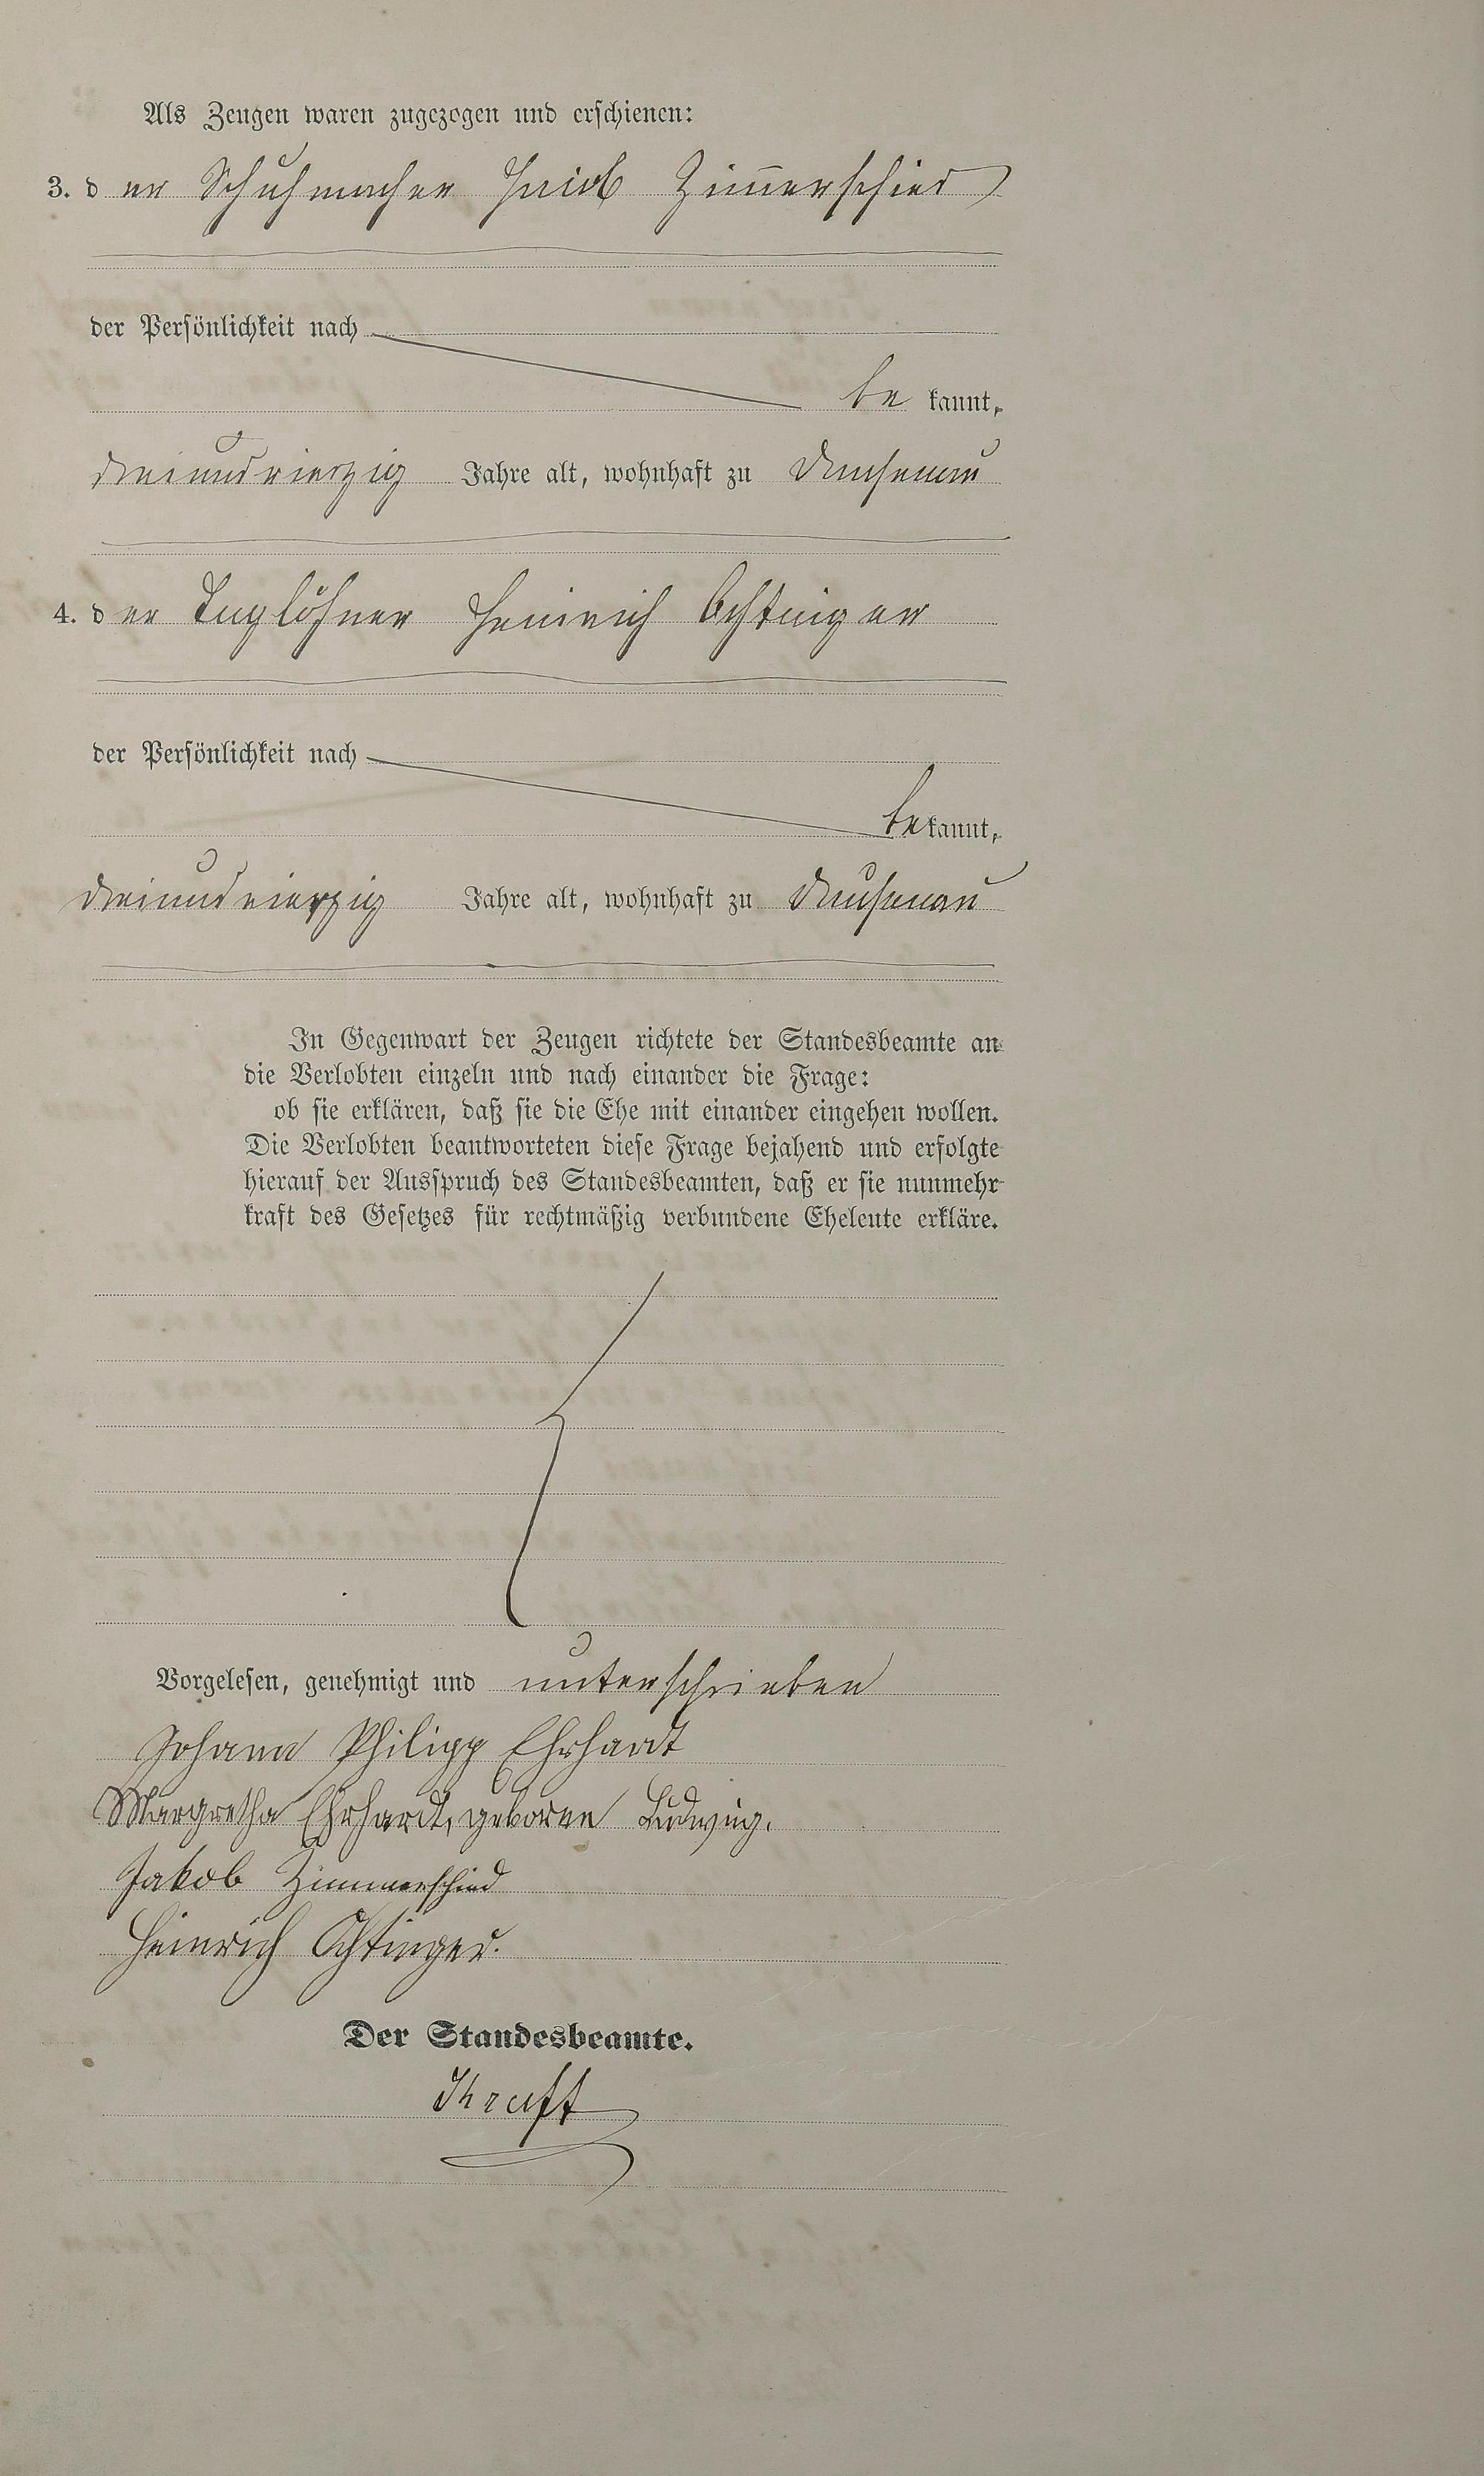 Als Zeugen waren zugezogen und erschienen:
3. der Schuhmacher Jacob Zim̅erschied
der Persönlichkeit nach
bekannt,
dreiundvierzig Jahre alt, wohnhaft zu Dausenau
4. der Taglöhner Heinrich Ochtinger
der Persönlichkeit nach
bekannt,
dreiundvierzig Jahre alt, wohnhaft zu Dausenau
In Gegenwart der Zeugen richtete der Standesbeamte an
die Verlobten einzeln und nach einander die Frage:
ob sie erklären, daß sie die Ehe mit einander eingehen wollen.
Die Verlobten beantworteten diese Frage bejahend und erfolgte
hierauf der Ausspruch des Standesbeamten, daß er sie nunmehr
kraft des Gesetzes für rechtmäßig verbundene Eheleute erkläre.
Vorgelesen, genehmigt und unterschrieben
Johann Philipp Ehrhardt
Margretha Ehrhardt, geborne Ludwig.
Jakob Zimmerschied
Heinrich Ochtinger.
Der Standesbeamte.
Kraft